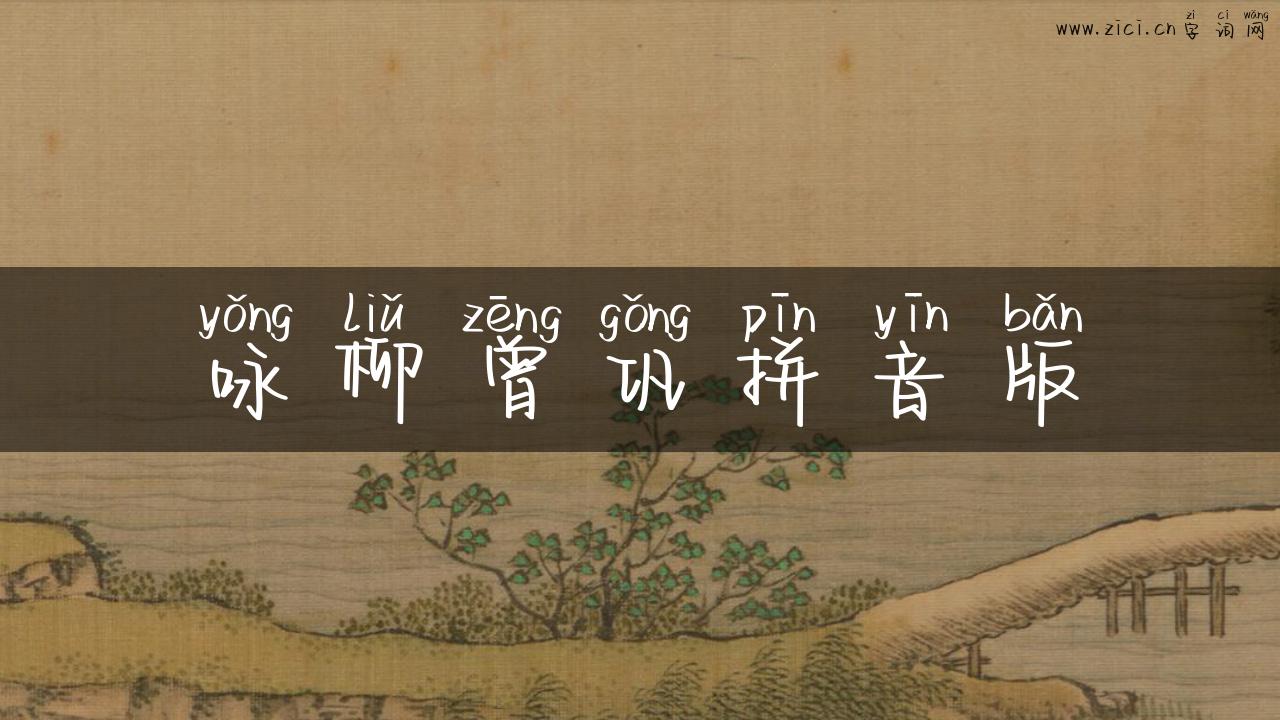 zì cí wǎng
www.zici.cn 字 词 网
yǒng liǔ zēng gǒng pīn yīn bǎn
咏 柳 曾 巩 拼 音 版